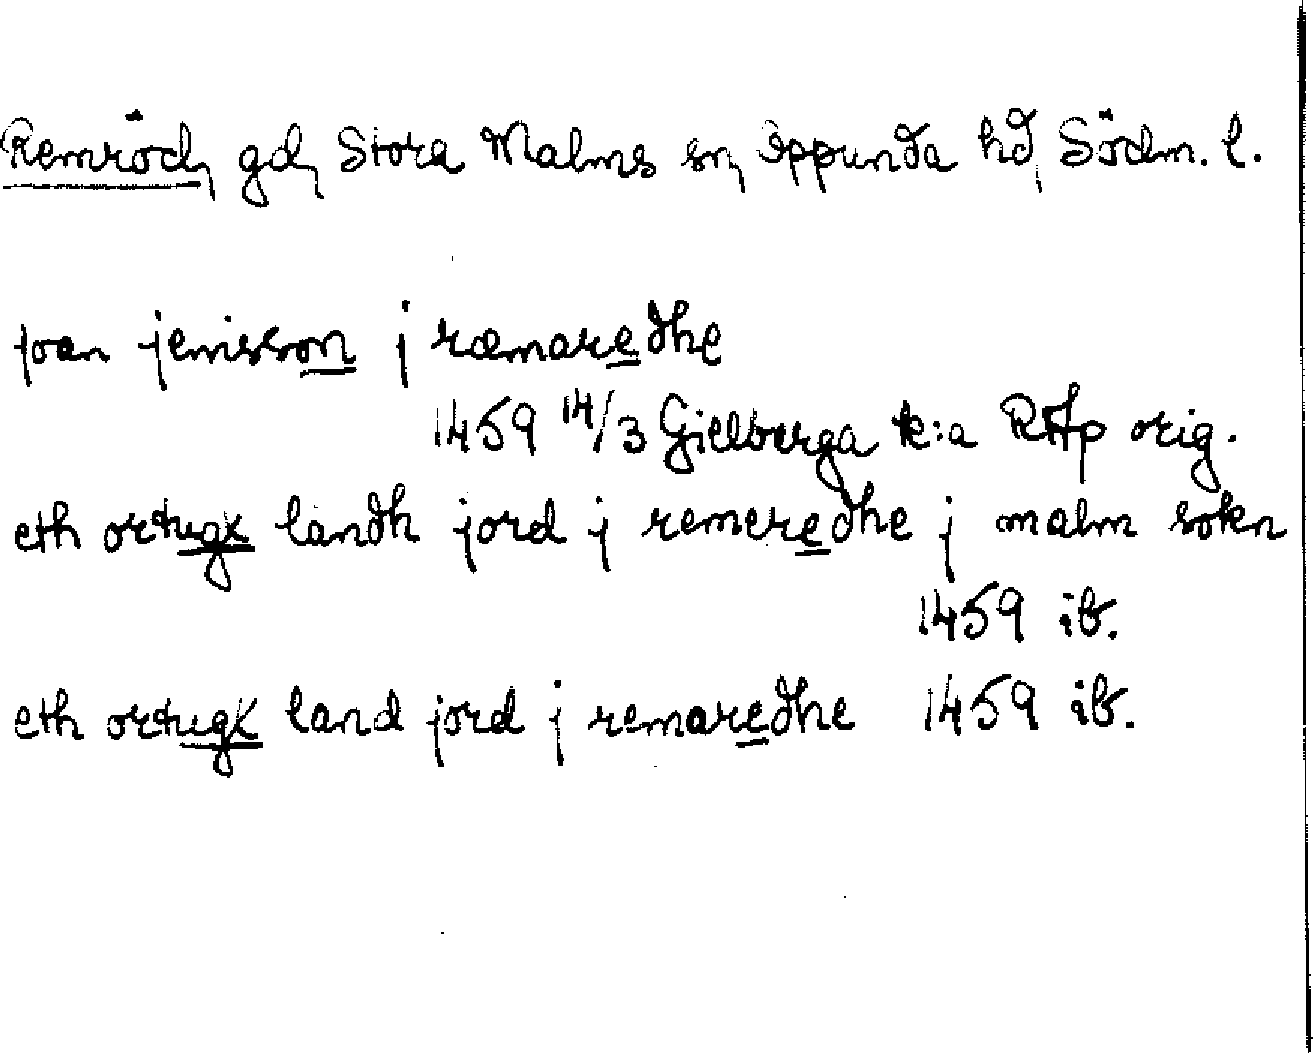 Remröd, gd, Stora Malms sn, Oppunda hd, Södm. l.
joan jenisson j ræmaredhe
1459 14/3 Gielberga k:a RAp orig.
eth ortugx landh jord j remeredhe j malm sokn
1459 ib.
eth ortugx land jord j remaredhe 1459 ib.